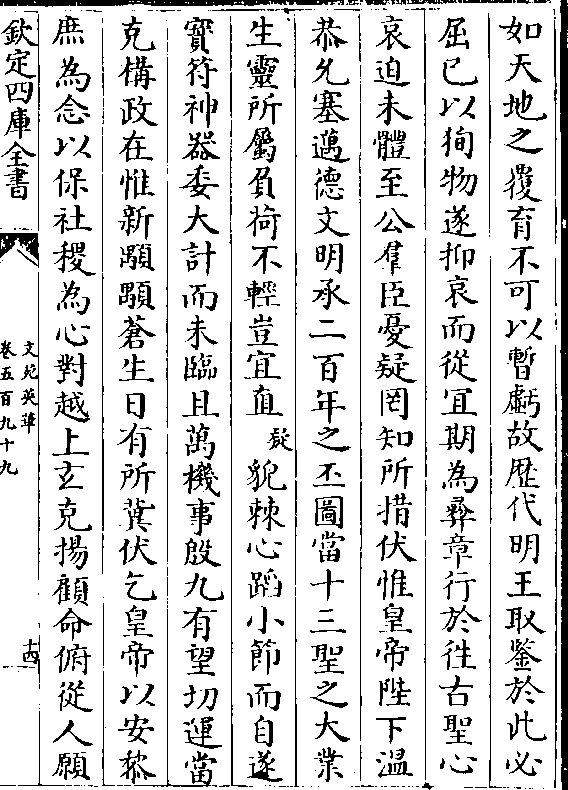 如天地之覆育不可以暫虧故歴代明王取鑒於此必
屈已以狥物遂抑哀而從冝期為彞章行於徃古聖心
哀迫未體至公羣臣憂疑罔知所措伏惟皇帝陛下溫
恭允塞邁德文明承二百年之丕圖當十三聖之大業
生靈所屬負荷不輕豈宜直疑貌棘心蹈小節而自遂
寳符神器委大計而未臨且萬機事殷九有望切運當
克構政在惟新顒顒蒼生日有所冀伏乞皇帝以安黎
庶為念以保社稷為心對越上玄克揚顧命俯從人願
欽定四庫全書
文苑英華
卷五百九十九
十四